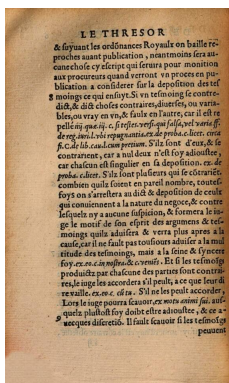 LE THRESOR
& suyuant les ordōnances Royaulx on baille re-
proches auant publication, neantmoins sera au-
cune chose cy escript qui serura pour monition
aux procureurs quand verront vn proces en pu-
blication a considerer sur la deposition des tes
moings ce qui ensuyt. Si vn tesmoing se contre-
dict, & dict choses contraires, diuerses, ou varia-
bles, ou vray en vn, & faulx en l'autre, car il est re
pellé
trarient, car a nul deux n'est foy adioustee,
car chascun est singulier en sa deposition. ex. de
proba. c. licet. S'ilz sont plusieurs qui se cōtrariēt
combien quilz soient en pareil nombre, toutes-
foys on s'arrestera au dict & deposition de ceulx
qui conuiennent a la nature du negoce, & contre
lesquelz ny a aucune suspicion, & formera le iu-
ge le motif de son esprit des argumens & tes-
moings quilz aduisera & verra plus apres a la
cause, car il ne fault pas tousiours aduiser a la mul
titude des tesmoings, mais a la seine & syncere
foy. Et si les tesmoīgs
productz par chascune des parties sont contrai-
res, le iuge les accordera s'il peult, a ce que leur di
re vaille. S'il ne les peult accorder,
Lors le iuge pourra scauoir, ex motu animi sui. aus-
quelz plustost foy doibt estre adioustee, & ce a-
uecques discretiō. Il fault scauoir si les tesmoīgs
peuuent